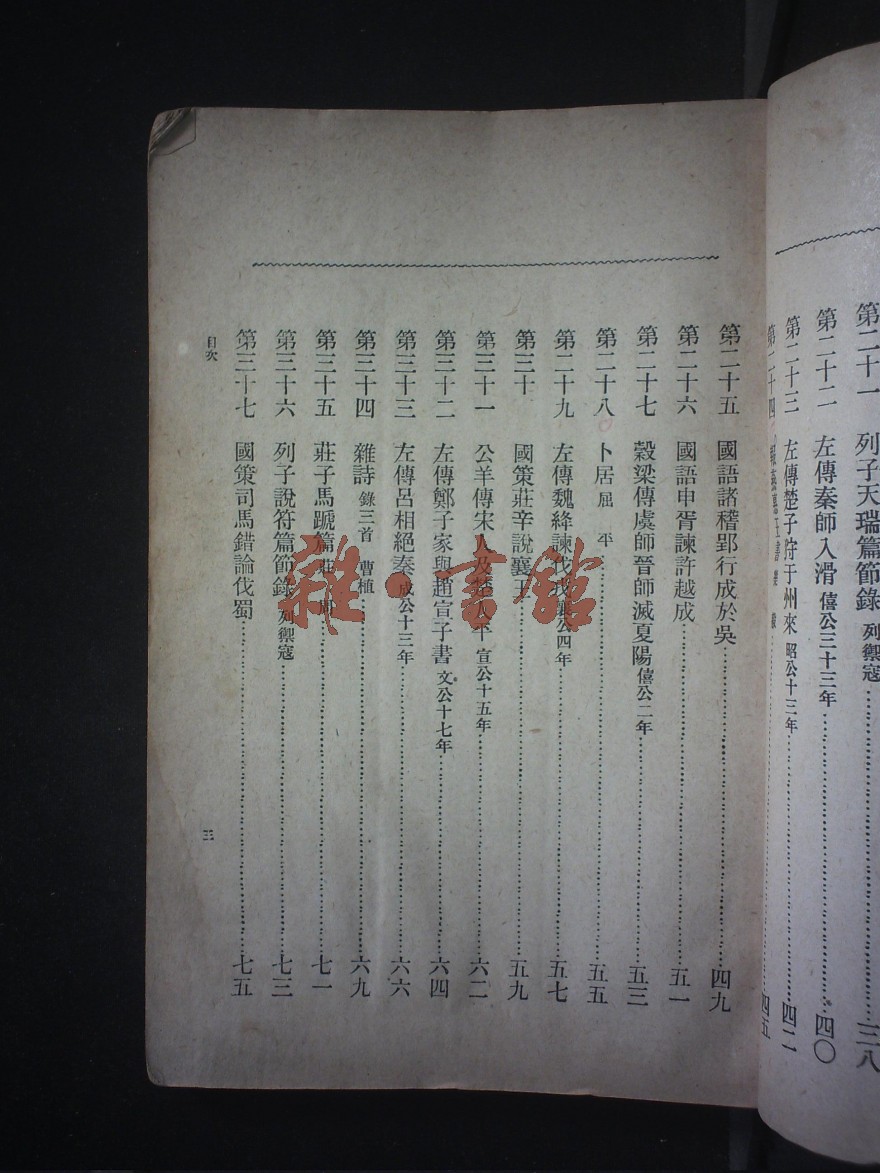 第二十一 列子天瑞篇節錄 列禦寇 三八
第二十二 左傳秦師入滑 僖公三十三年 四〇
第二十三 左傳楚子狩于州來 昭公十三年 四二
第二十四 四五
第二十五 國語諸稽郢行成於吳 四九
第二十六 國語申胥諫許越成 五一
第二十七 穀梁傳虞師晉師滅夏陽 僖公二年 五三
第二十八 卜居 屈平 五五
第二十九 左傳魏絳諫伐戎 襄公四年 五七
第三十 國策莊辛說襄王 五九
第三十一 公羊傳宋人及楚人平 宣公十五年 六二
第三十二 左傳鄭子家與趙宣子書 文公十七年 六四
第三十三 左傳呂相絕秦 成公十三年 六六
第三十四 雜詩 錄三首 曹植 六九
第三十五 莊子馬蹏篇 莊周 七一
第三十六 列子說符篇節錄 列禦寇 七三
第三十七 國策司馬錯論伐蜀 七五
目次 三
雜·書館